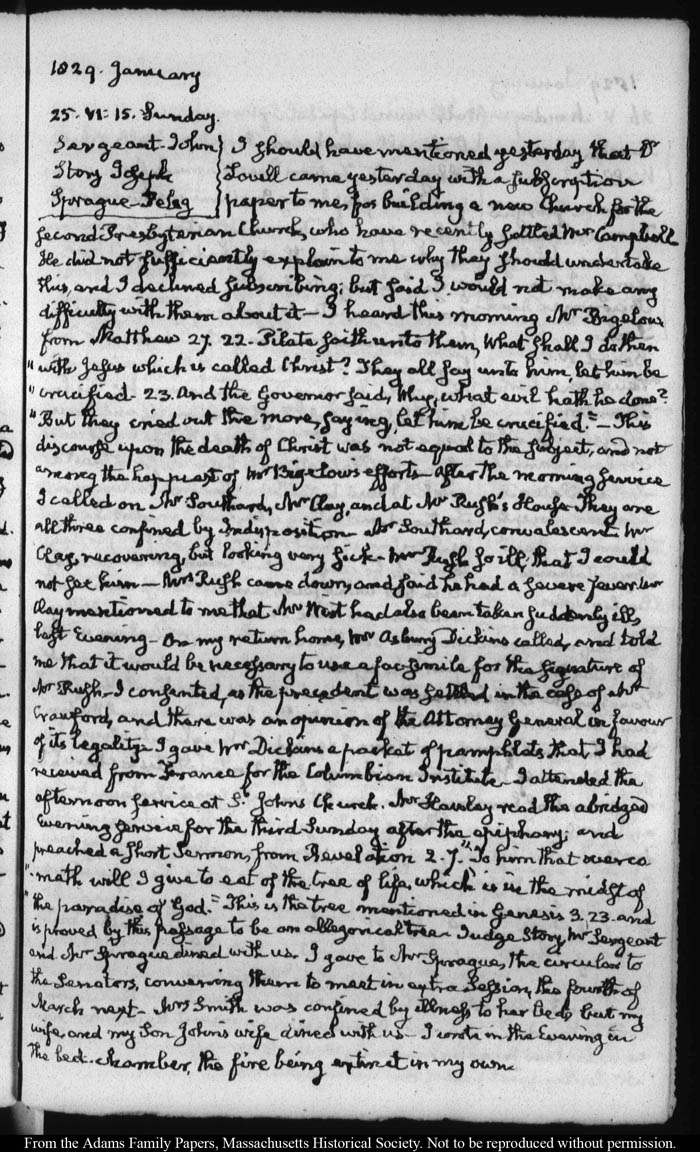 1829. January
25. VI: 15. Sunday.
Sergeant. John } I should have mentioned yesterday that Dr
Story Joseph } Lovell came yesterday with a subscription
Sprague Peleg } paper to me, for building a new Church for the
second Presbyterian Church, who have recently settled Mr Campbell
He did not sufficiently explain to me why they should undertake
this, and I declined subscribing; but said I would not make any
difficulty with them about it — I heard this morning Mr Bigelow
from Matthew 27. 22 - Pilate saith unto them, What shall I do then
" with Jesus which is called Christ? They all say unto him, let him be
" crucified - 23. And the Governor said, Why, what evil hath he done?
" But they cried out the more, saying, let him be crucified." — This
discourse upon the death of Christ was not equal to the subject, and not
among the happiest of Mr Bigelow's efforts - After the morning service
I called on Mr Southard, Mr Clay, and at Mr Rush's House - They are
all three confined by Indisposition - Mr Southard, convalescent Mr
Clay, recovering, but looking very sick - Mr Rush so ill, that I could
not see him — Mrs Rush came down, and said he had a severe fever. Mr
Clay mentioned to me that Mr Wirt had also been taken suddenly ill,
last Evening - On my return home, Mr Asbury Dickins called, and told
me that it would be necessary to use a facsimile for the signature of
Mr Rush - I consented, as the precedent was settled in the case of Mr
Crawford, and there was an opinion of the Attorney General in favour
of its legality - I gave Mr Dickins a packet of pamphlets that I had
received from France for the Columbian Institute - I attended the
afternoon service at St. Johns Church. Mr Hawley read the abridged
Evening service for the third Sunday after the epiphany; and
preached a short Sermon, from Revelation 2. 7. "To him that overco
" -meth will I give to eat of the tree of life, which is in the midst of
" the paradise of God." This is the tree mentioned in Genesis 3. 23. and
is proved by this passage to be an allegorical tree - Judge Story, Mr Sergeant
and Mr Sprague dined with us. I gave to Mr Sprague, the circular to
the Senators, convening them to meet in extra Session, the fourth of
March next - Mrs Smith was confined by illness to her bed; but my
wife, and my Son John's wife dined with us - I wrote in the Evening in
the bed-chamber, the fire being extinct in my own.
From the Adams Family Papers, Massachusetts Historical Society. Not to be reproduced without permission.